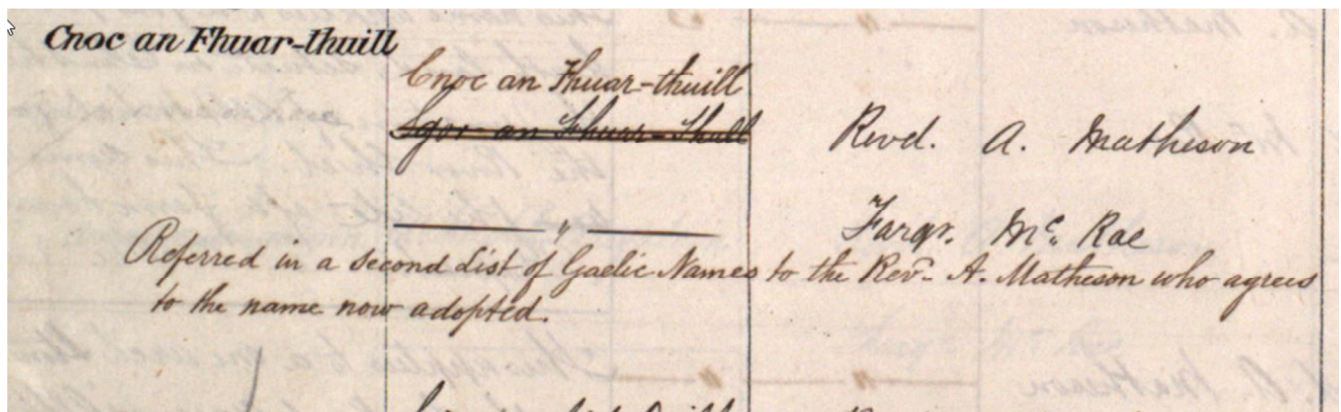 Cnoc an Fhuar-thuill
Cnoc an Fhuar-thuill
Sgor an Fhuar-Thuill
Revd. A. Matheson
———"———
Farqr. Mc. Rae
Referred in a second List of Gaelic Names to the Revd. A. Matheson who agrees
to the name now adopted.